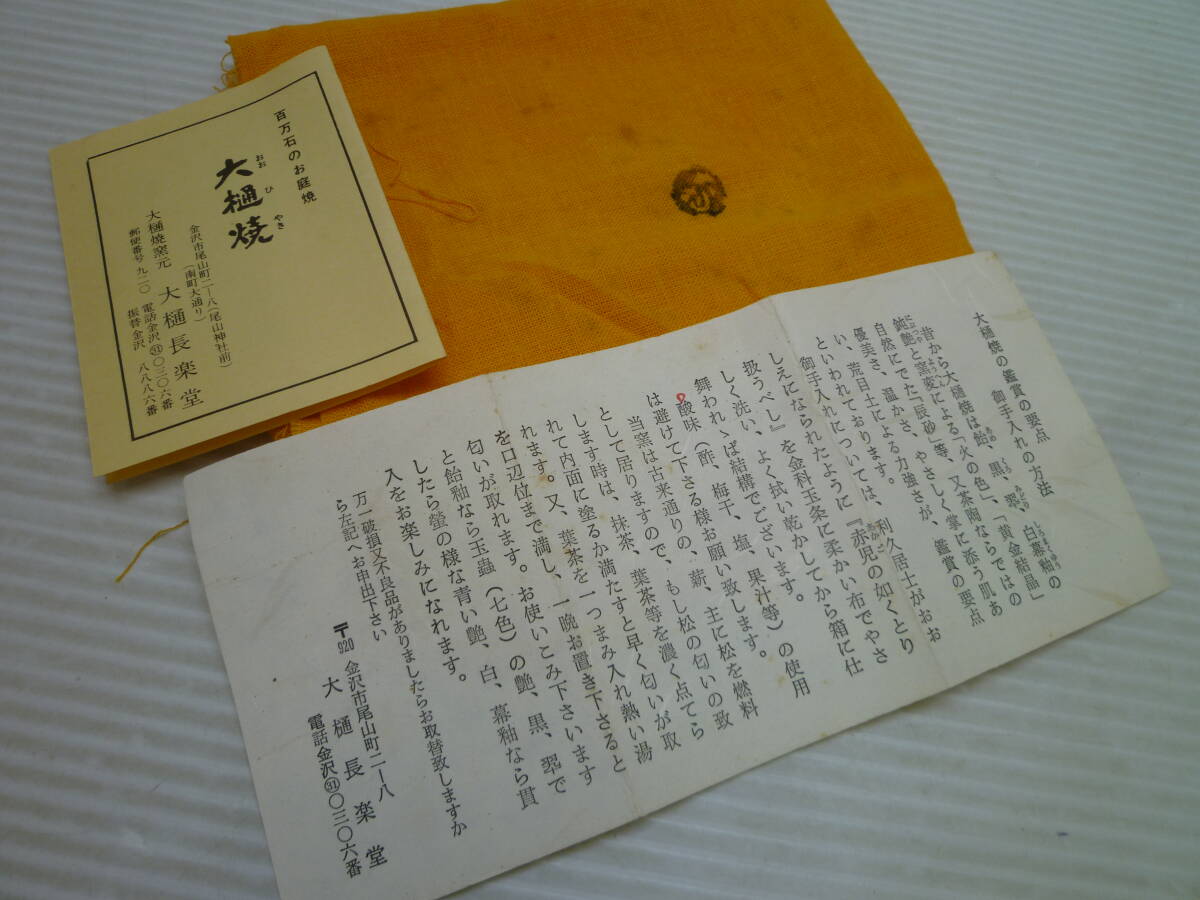 百万石のお庭焼
大樋焼
おお ひ やき
金沢市尾山町二―八(尾山神社前)
(南町大通り)
大樋焼窯元 大樋長楽堂
郵便番号 九二〇 電話金沢㉛〇三〇六番
振替金沢 八八八六番
大樋焼の鑑賞の要点
御手入れの方法
昔から大樋焼は飴、黒、翠、白幕釉の
鈍艶と窯変による「火の色」、「黄金結晶」
自然にでた「辰砂」等、又茶陶ならではの
優美さ、温かさ、やさしく掌に添う肌あ
い、苦目土による力強さが、鑑賞の要点
といわれております。
御手入れについては、利久居士がおお
しえになられたように『赤児の如くとり
扱うべし』を金科玉条に柔かい布でやさ
しく洗い、よく拭い乾かしてから箱に仕
舞われゝば結構でございます。
酸味(酢、梅干、塩、果汁等)の使用
は避けて下さる様お願い致します。
当窯は古来通りの、薪、主に松を燃料
として居りますので、もし松の匂いの致
します時は、抹茶、葉茶等を濃く点てら
れて内面に塗るか満たすと早く匂いが取
れます。又、葉茶を一つまみ入れ熱い湯
を口辺位まで満し、一晩お置き下さると
匂いが取れます。お使いこみ下さいます
と飴釉なら玉蟲(七色)の艶、黒、翠で
したら螢の様な青い艶、白、幕釉なら貫
入をお楽しみになれます。
万一破損又不良品がありましたらお取替致しますか
ら左記へお申出下さい
〒920 金沢市尾山町二―八
大樋長楽堂
電話金沢㉛〇三〇六番